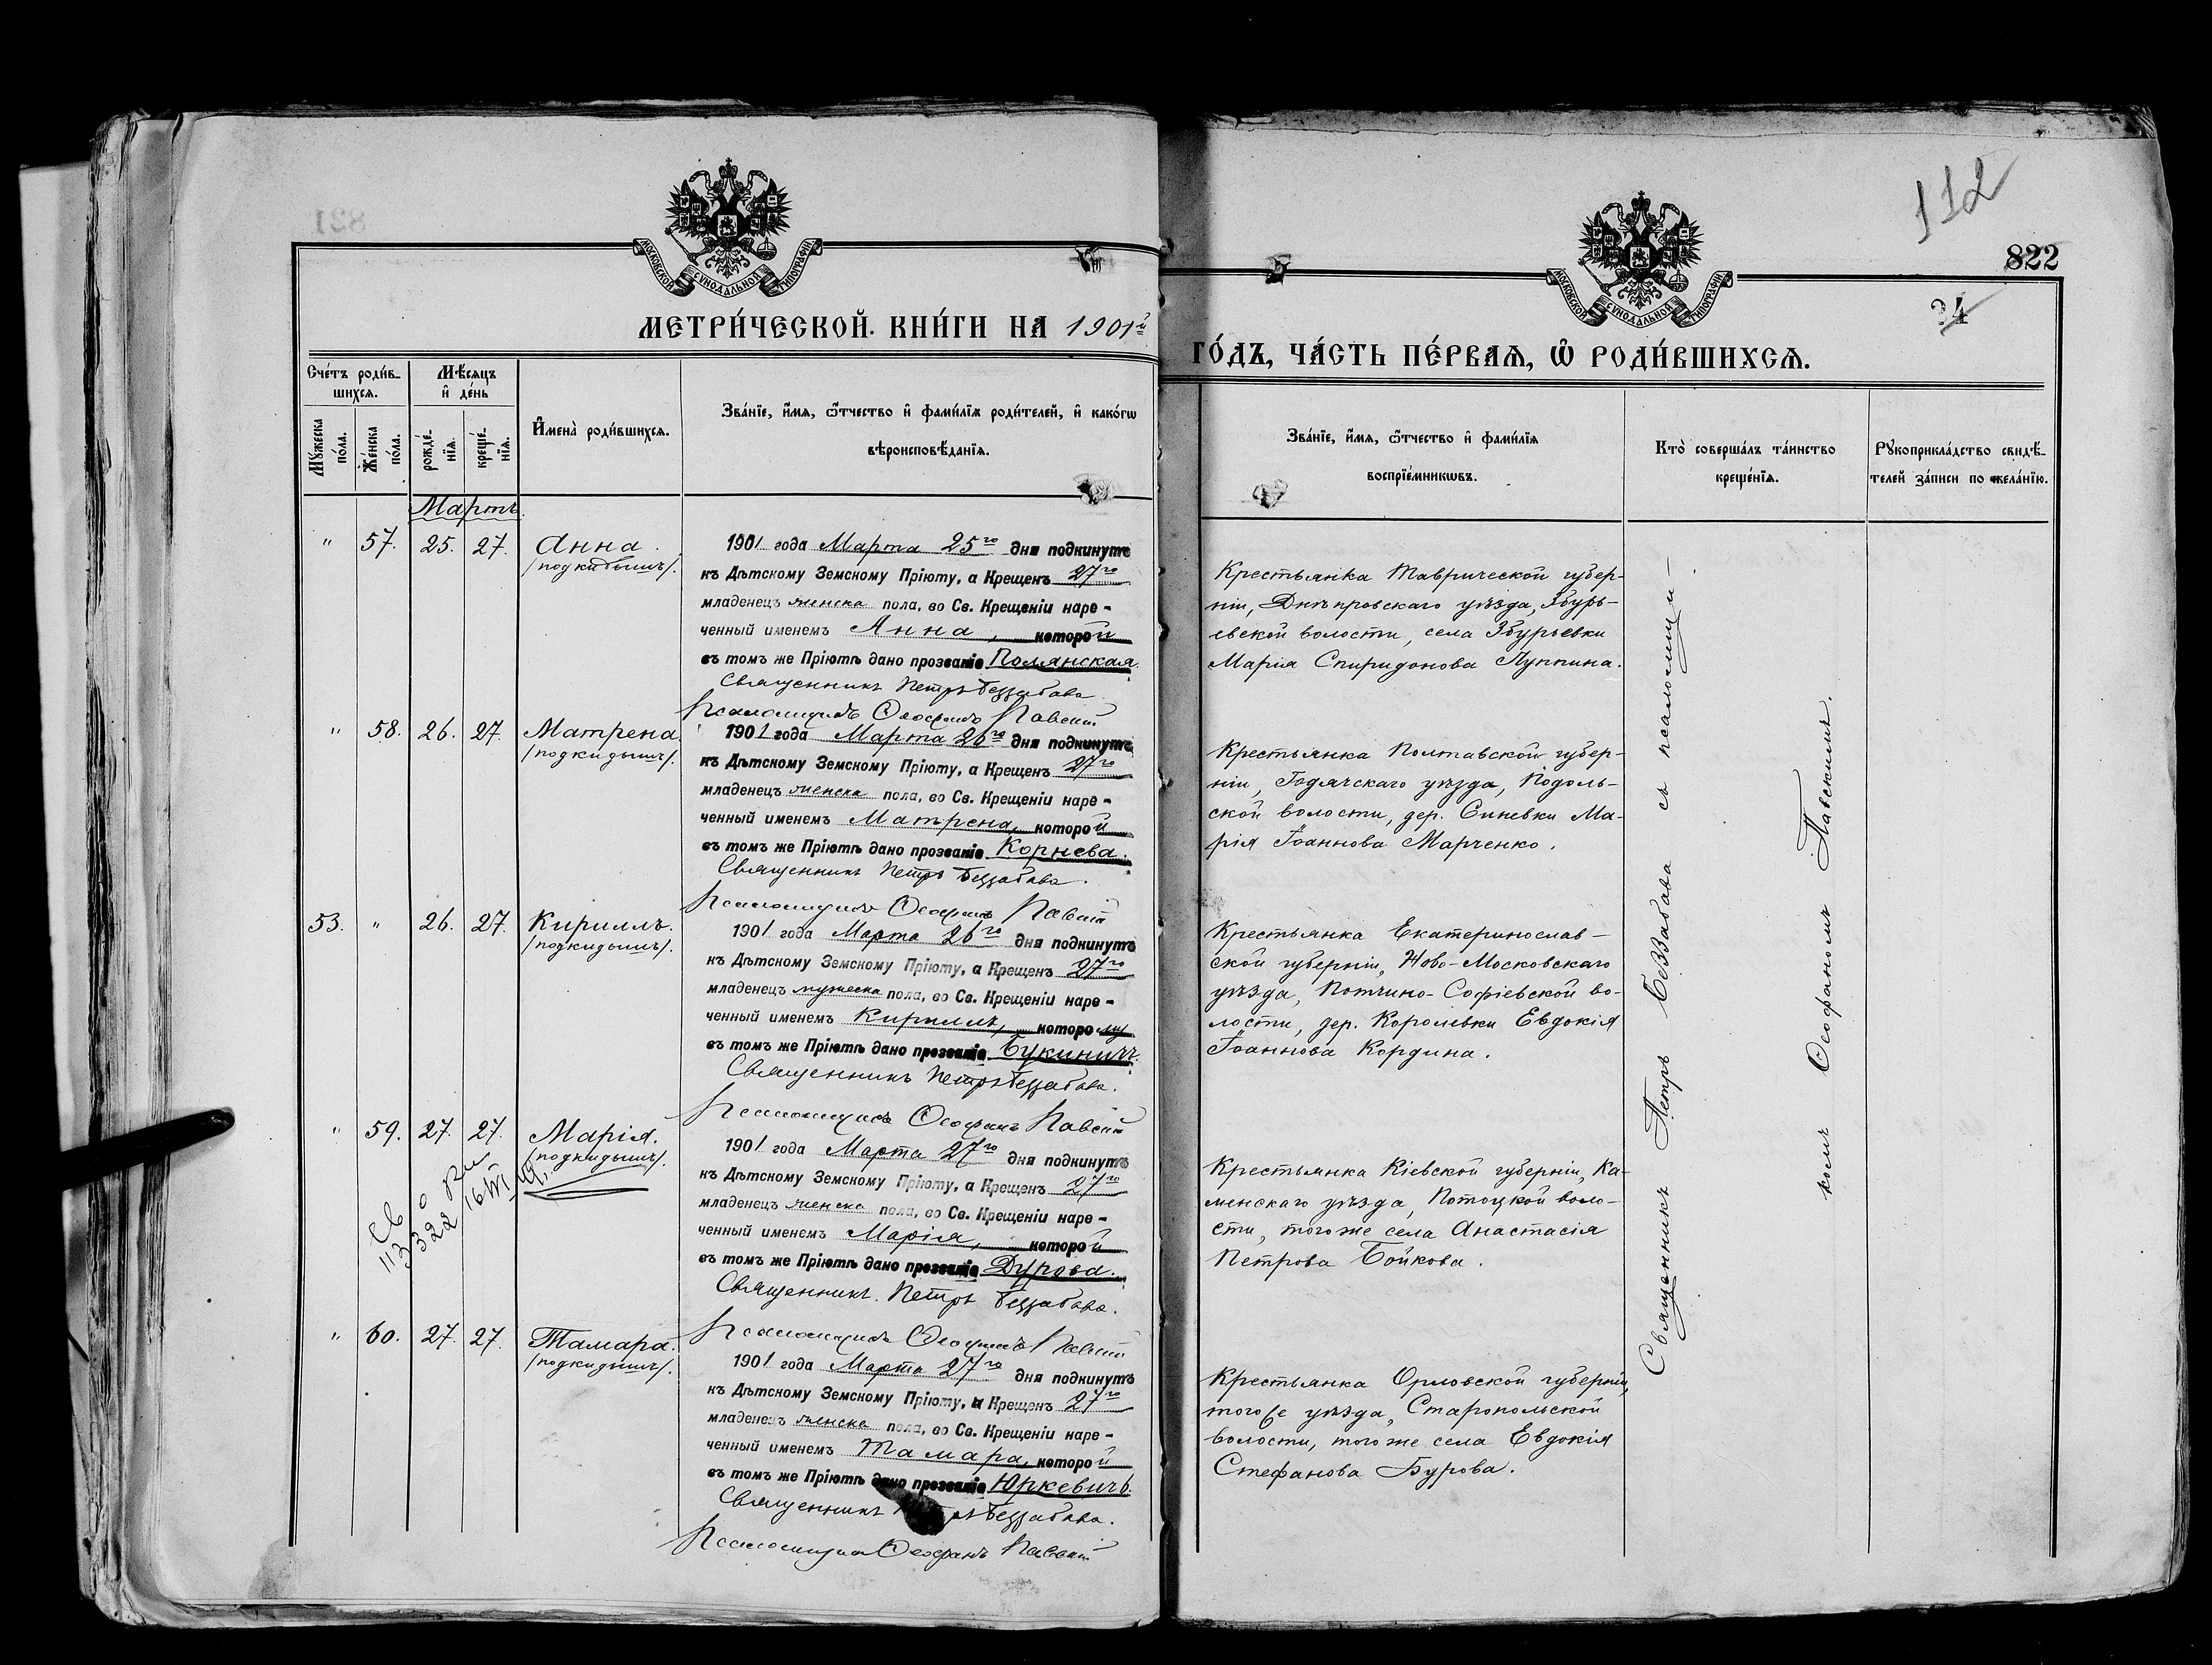 112
822
34
МОСКОВСКОЙ СѴНОДАЛЬНОЙ ТИПОГРАФІИ
МЕТРИ́ЧЕСКОЙ КНИ́ГИ НА 1901й
МОСКОВСКОЙ СѴНОДАЛЬНОЙ ТИПОГРАФІИ
ГО́ДЪ, ЧА́СТЬ ПЕ́РВАѦ, Ѡ РОДИ́ВШИХСѦ.
Сче́тъ роди́в-
шихсѧ.
Мꙋ́жеска по́ла.
Же́нска по́ла.
Мѣ́сѧцъ
и҆ де́нь
рожде́-
нїѧ.
креще́-
нїѧ.
И҆мена̀ роди́вшихсѧ.
Зва́нїе, и҆́мѧ, ѻ҆́тчество и҆ фами́лїѧ роди́телей, и҆ како́гѡ
вѣроисповѣ́данїѧ.
Зва́нїе, и҆́мѧ, ѻ҆́тчество и҆ фами́лїѧ
воспрїе́мникѡвъ.
Кто̀ соверша́лъ та́инство
креще́нїѧ.
Рꙋкоприкла́дство свидѣ́-
телей за́писи по жела́нїю.
Мартъ.
" 57. 25. 27. Анна
/подкидышъ/.
1901 года Марта 25го дня подкинутъ
къ Дѣтскому Земскому Пріюту, а Крещенъ 27го
младенецъ женска пола, во Св. Крещеніи наре-
ченный именемъ Анна, которой
въ томъ же Пріютѣ дано прозваніе Полянская.
Священникъ Петръ Беззабава
Псаломщикъ Ѳеофанъ Павскій
Крестьянка Таврической губер-
ніи, Днѣпровскаго уѣзда, Збурь-
евской волости, села Збурьевки
Марія Спиридонова Луппина.
" 58. 26. 27. Матрена
/подкидышъ/.
1901 года Марта 26го дня подкинутъ
къ Дѣтскому Земскому Пріюту, а Крещенъ 27го
младенецъ женска пола, во Св. Крещеніи наре-
ченный именемъ Матрена, которой
въ томъ же Пріютѣ дано прозваніе Корнева.
Священникъ Петръ Беззабава.
Псаломщикъ Ѳеофанъ Павскій
Крестьянка Полтавской губер-
ніи, Гадячскаго уѣзда, Подоль-
ской волости, дер. Синевки Ма-
рія Іоаннова Марченко.
53. " 26. 27. Кириллъ.
/подкидышъ/.
1901 года Марта 26го дня подкинутъ
къ Дѣтскому Земскому Пріюту, а Крещенъ 27го
младенецъ мужеска пола, во Св. Крещеніи наре-
ченный именемъ Кириллъ, которому
въ томъ же Пріютѣ дано прозваніе Букиничъ.
Священникъ Петръ Беззабава.
Псаломщикъ Ѳеофанъ Павскій
Крестьянка Екатеринослав-
ской губерніи, Ново-Московскаго
уѣзда, Вотчино-Софіевской во-
лости, дер. Королевки Евдокія
Іоаннова Кордина.
" 59. 27. 27. Марія.
/подкидышъ/.
1901 года Марта 27го дня подкинутъ
къ Дѣтскому Земскому Пріюту, а Крещенъ 27го
младенецъ женска пола, во Св. Крещеніи наре-
ченный именемъ Марія, которой
въ томъ же Пріютѣ дано прозваніе Дурова.
Священникъ Петръ Беззабава.
Псаломщикъ Ѳеофанъ Павскій
Крестьянка Кіевской губерніи, Ка-
менскаго уѣзда, Потоцкой воло-
сти, того же села Анастасія
Петрова Бойкова.
" 60. 27. 27. Тамара.
/подкидышъ/.
1901 года Марта 27го дня подкинутъ
къ Дѣтскому Земскому Пріюту, а Крещенъ 27го
младенецъ женска пола, во Св. Крещеніи наре-
ченный именемъ Тамара, которой
въ томъ же Пріютѣ дано прозваніе Юркевичъ.
Священникъ Петръ Беззабава.
Псаломщикъ Ѳеофанъ Павскій
Крестьянка Орловской губерніи,
того же уѣзда, Старопольской
волости, того же села Евдокія
Стефанова Бурова.
Священникъ Петръ Беззабава съ псаломщи-
комъ Ѳеофаномъ Павскимъ.